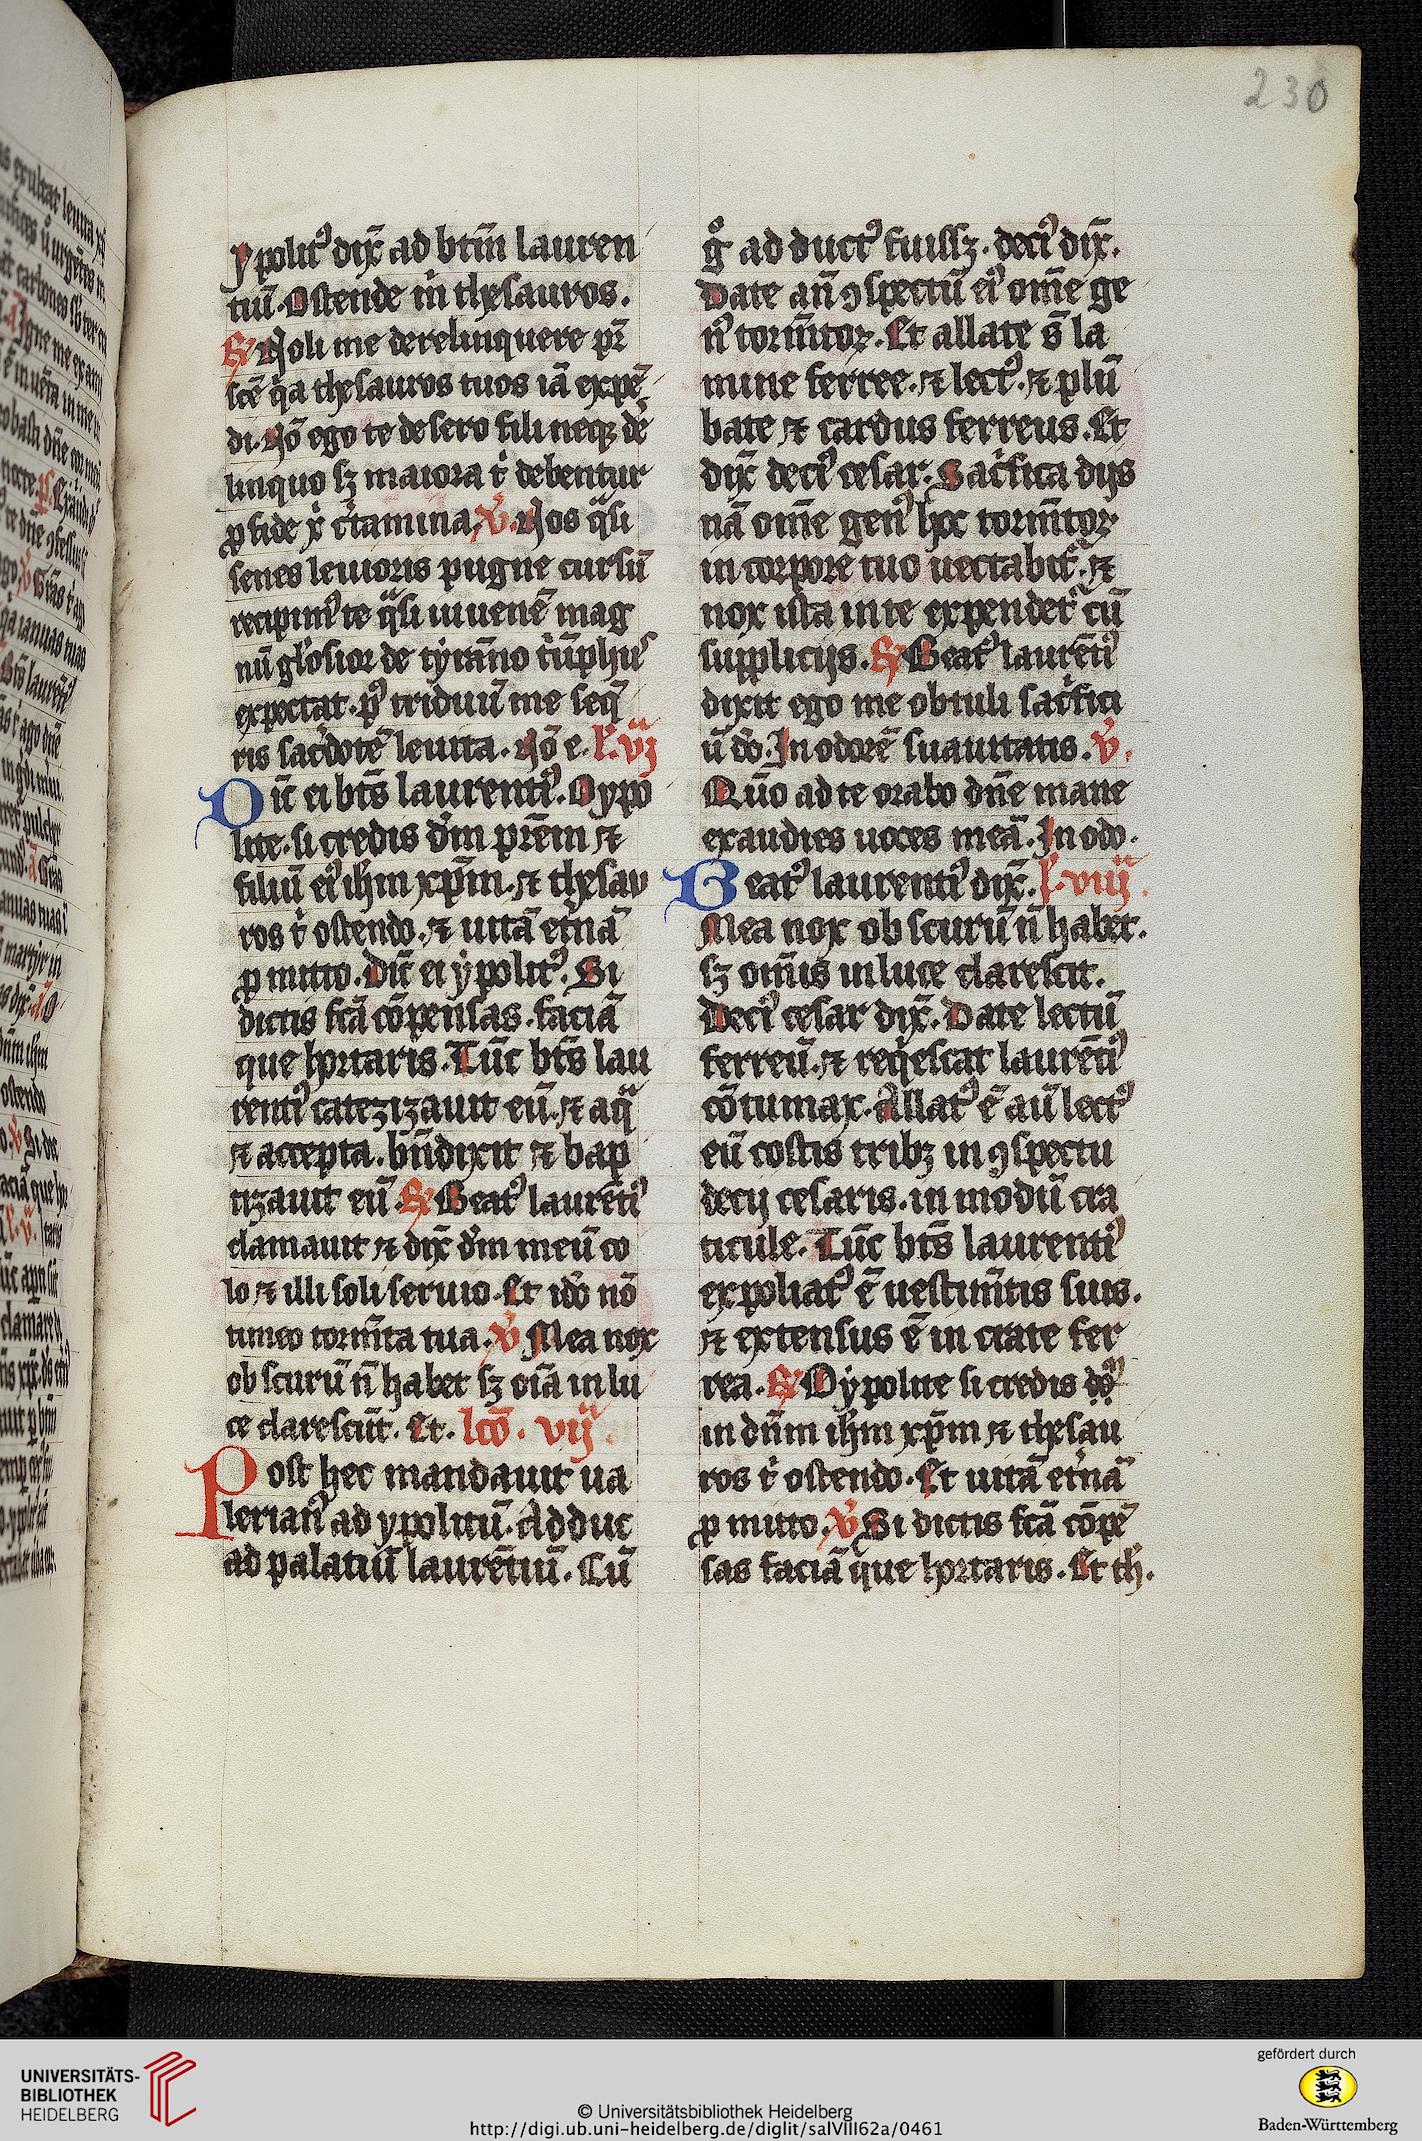 230
ypolitꝰ dix̄ ad btm̄ lauren
tiū. Ostende m̉ thesauros.
R̸ Noli me derelinquere pr̄
scē q̉a thesauros tuos iā expē
di. Nō ego te desero fili neqꝫ de
linquo sꝫ maiora t̉ debentur
ꝓ fide x̉ c̉tamina. V̉. Nos qͣsi
senes leuioris pugne cursū
recipimꝰ te qͣsi iuuenē mag
nū gl̉osior de tyrāno t̉ūphus
expectat. pꝰ triduū me seq̄
ris sac̉dotē leuita. Nō e. l̉. vi
Dic̄ ei bt̄s laurentiꝰ. O ypo
lite. si credis d̉m prēm ⁊
filiū eiꝰ ihm xp̄m. ⁊ thesau
ros t̉ ostendo. ⁊ uitā et̉nā
ꝓmitto. Dic̄ ei ypolitꝰ. Si
dictis fc̄ā cōpensas. faciā
que hortaris. Tūc bt̄s lau
rentiꝰ catezizauit eū. ⁊ aqͣ
⁊ accepta. bn̄dixit ⁊ bap
tizauit eū. R̸ Beatꝰ laurētiꝰ
clamauit ⁊ dix̄ d̉m meū co
lo ⁊ illi soli seruio. Et ido nō
timeo torm̄ta tua. V̉ Mea nox
obscurū n̄ habet sꝫ oīa in lu
ce clarescūt. Et. lcō. vij
Post hec mandauit ua
lerianꝰ ad ypolitū. Adduc
ad palatiū laurētiū. Cū
gͦ ad ductꝰ fuissꝫ. deciꝰ dix̄.
Date an̄ ꝯspectū eiꝰ om̄e ge
nꝰ torm̄torꝝ. Et allate s̄ la
mine ferree. ⁊ lectꝰ. ⁊ plū
bate ⁊ cardus ferreus. Et
dix̄ deciꝰ cesar. Sac̉fica dijs
nā om̄e genꝰ hoc torm̄torꝝ
in corpore tuo uectabitͬ. ⁊
nox ista in te expendetͬ cū
supplicijs. R̸ Beatꝰ laurētiꝰ
dixit ego me obtuli sac̉fici
ū d̉o. In odorē suauitatis. V̉.
Qūo ad te orabo dn̄e mane
exaudies uoces meā. In odo.
Beatꝰ laurentiꝰ dix̄. l̉. viij
Mea nox obscurū n̄ habet.
sꝫ om̄is in luce clarescit.
Deciꝰ cesar dix̄. Date lectū
ferreū. ⁊ req̉escat laurētiꝰ
cōtumax. Allatꝰ ē aū lectꝰ
eū costis tribꝫ in ꝯspectu
decij cesaris. in modū cra
ticule. Tūc bt̄s laurentiꝰ
expoliatꝰ ē uestim̄tis suis.
⁊ extensus ē in crate fer
rea. R̸ O ypolite si credis
in dn̄m ihm xp̄m ⁊ thesau
ros t̉ ostendo. Et uitā et̉nā
ꝓmitto. V̉ Si dictis fc̄ā cōpē
sas faciā que hortaris. Et th̉.
UNIVERSITÄTS-
BIBLIOTHEK
HEIDELBERG
© Universitätsbibliothek Heidelberg
http://digi.ub.uni-heidelberg.de/diglit/salVIII62a/0461
gefördert durch
Baden-Württemberg